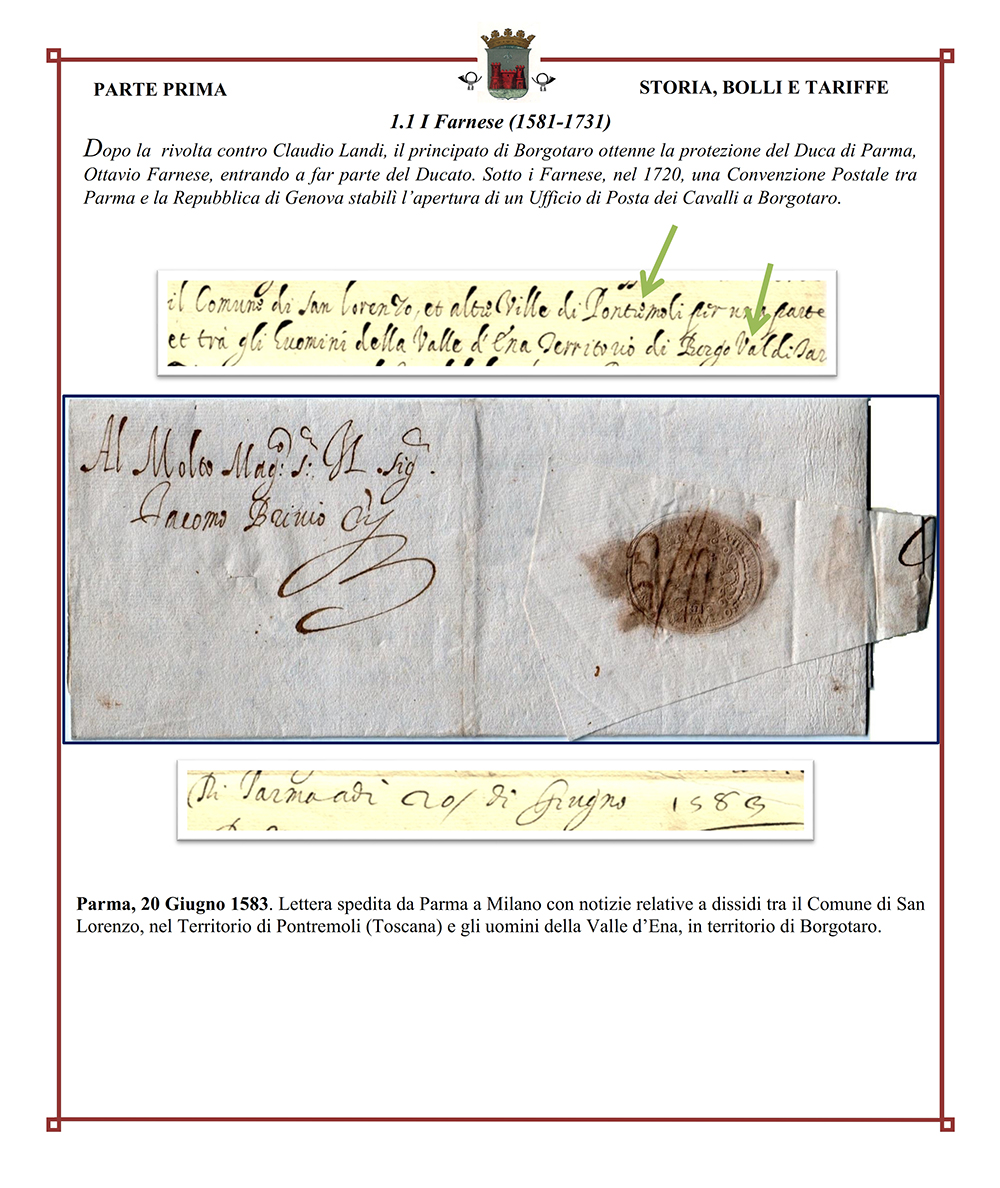 PARTE PRIMA
STORIA, BOLLI E TARIFFE
1.1 I Farnese (1581-1731)
Dopo la rivolta contro Claudio Landi, il principato di Borgotaro ottenne la protezione del Duca di Parma,
Ottavio Farnese, entrando a far parte del Ducato. Sotto i Farnese, nel 1720, una Convenzione Postale tra
Parma e la Repubblica di Genova stabilì l’apertura di un Ufficio di Posta dei Cavalli a Borgotaro.
il Comune di San Lorenzo, et altre Ville di Pontremoli per una parte
et trà gli huomini della Valle d'Ena Territorio di Borgo Val di Tar
Al Molto Mag.
Sig.
Giacomo
Di Parma adi 20 di Giugno 1583
Parma, 20 Giugno 1583. Lettera spedita da Parma a Milano con notizie relative a dissidi tra il Comune di San
Lorenzo, nel Territorio di Pontremoli (Toscana) e gli uomini della Valle d’Ena, in territorio di Borgotaro.